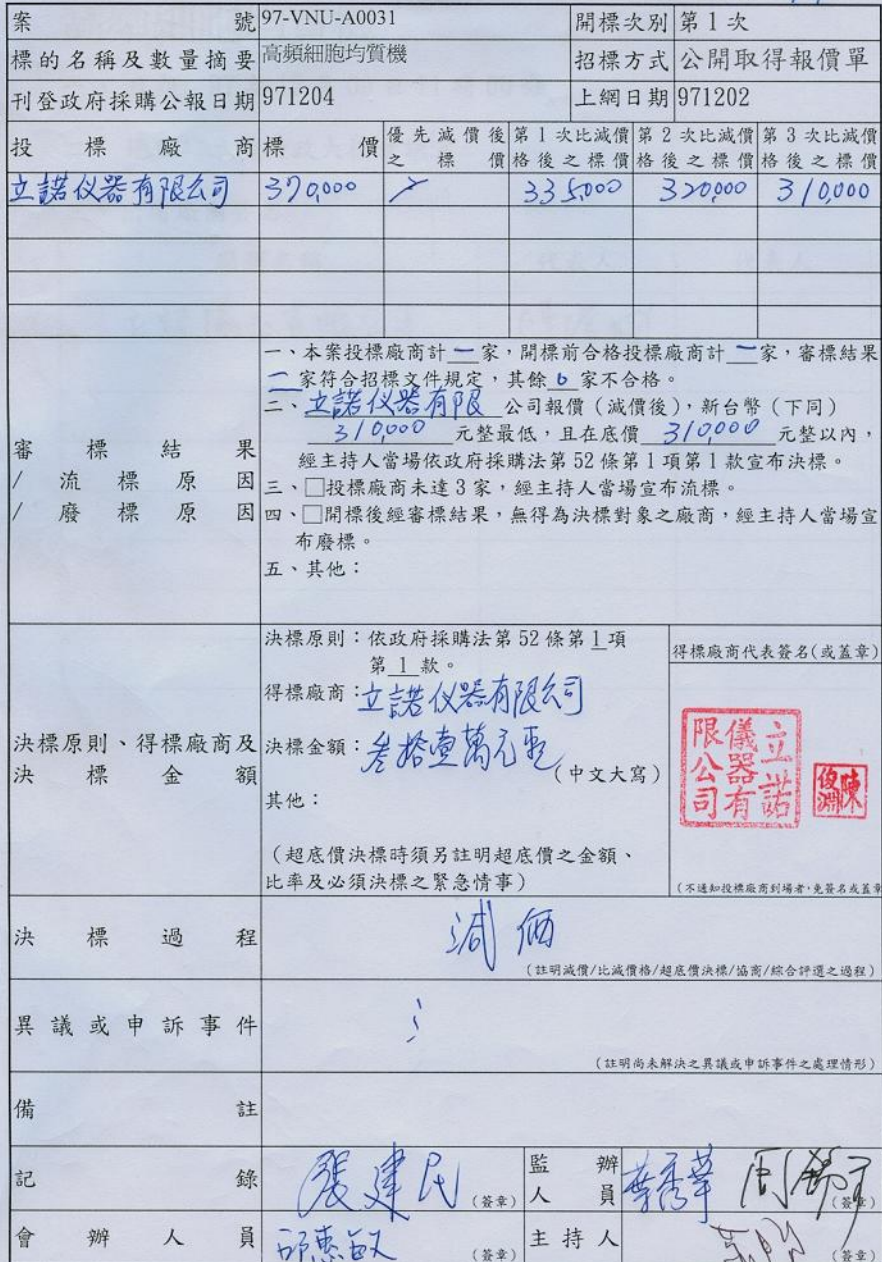 案號 97-VNU-A0031 開標次別 第 1 次
標的名稱及數量摘要 高頻細胞均質機 招標方式 公開取得報價單
刊登政府採購公報日期 971204 上網日期 971202
投標廠商 標價 優先減價後之標價 第 1 次比減價格後之標價 第 2 次比減價格後之標價 第 3 次比減價格後之標價
立諾仪器有限公司 370,000 335,000 320,000 310,000
審標結果/流標原因/廢標原因
一、本案投標廠商計一家,開標前合格投標廠商計一家,審標結果
一家符合招標文件規定,其餘0家不合格。
二、立諾仪器有限公司報價(減價後),新台幣(下同)
310,000元整最低,且在底價310,000元整以內,
經主持人當場依政府採購法第 52 條第 1 項第 1 款宣布決標。
三、□投標廠商未達 3 家,經主持人當場宣布流標。
四、□開標後經審標結果,無得為決標對象之廠商,經主持人當場宣
布廢標。
五、其他:
決標原則、得標廠商及決標金額
決標原則:依政府採購法第 52 條第 1 項
第 1 款。
得標廠商:立諾仪器有限公司
決標金額:叁拾壹萬元正
(中文大寫)
其他:
(超底價決標時須另註明超底價之金額、
比率及必須決標之緊急情事)
得標廠商代表簽名(或蓋章)
立諾儀器有限公司
陳俊淵
(不通知投標廠商到場者,免簽名或蓋章
決標過程 減価
(註明減價/比減價格/超底價決標/協商/綜合評選之過程)
異議或申訴事件
(註明尚未解決之異議或申訴事件之處理情形)
備註
記錄 張建民 (簽章) 監辦人員 葉秀華 (簽章)
會辦人員 邱惠敏 (簽章) 主持人 (簽章)